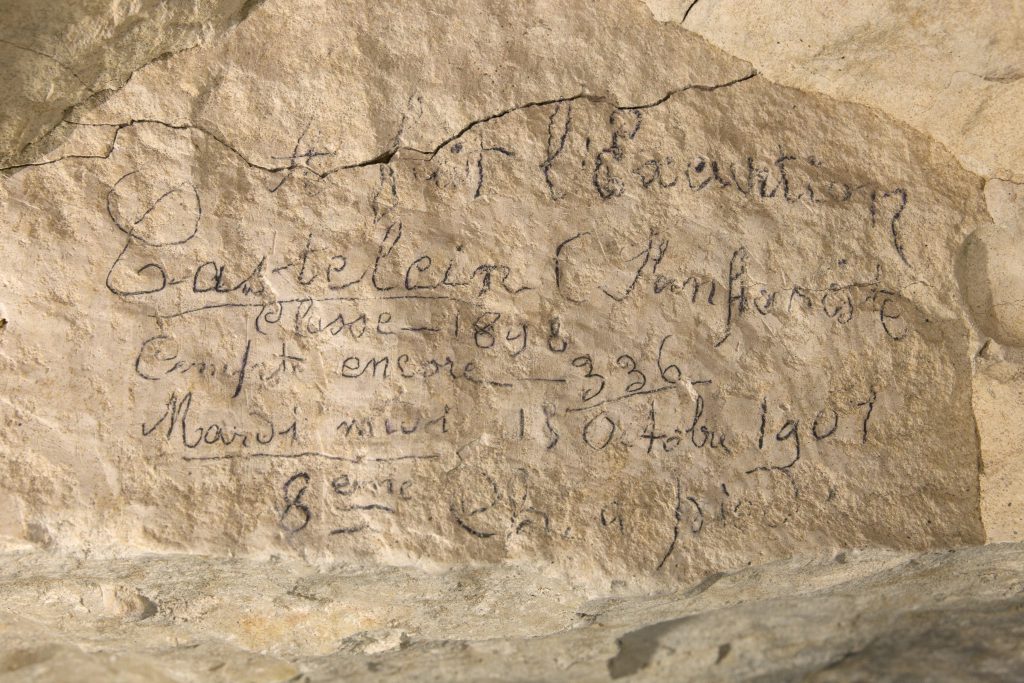 A fait
Castelein (Fanfariste.
Classe — 1898
Compte encore — 336
Mardi midi 15 Octobre 1901
8eme Ch. a pied